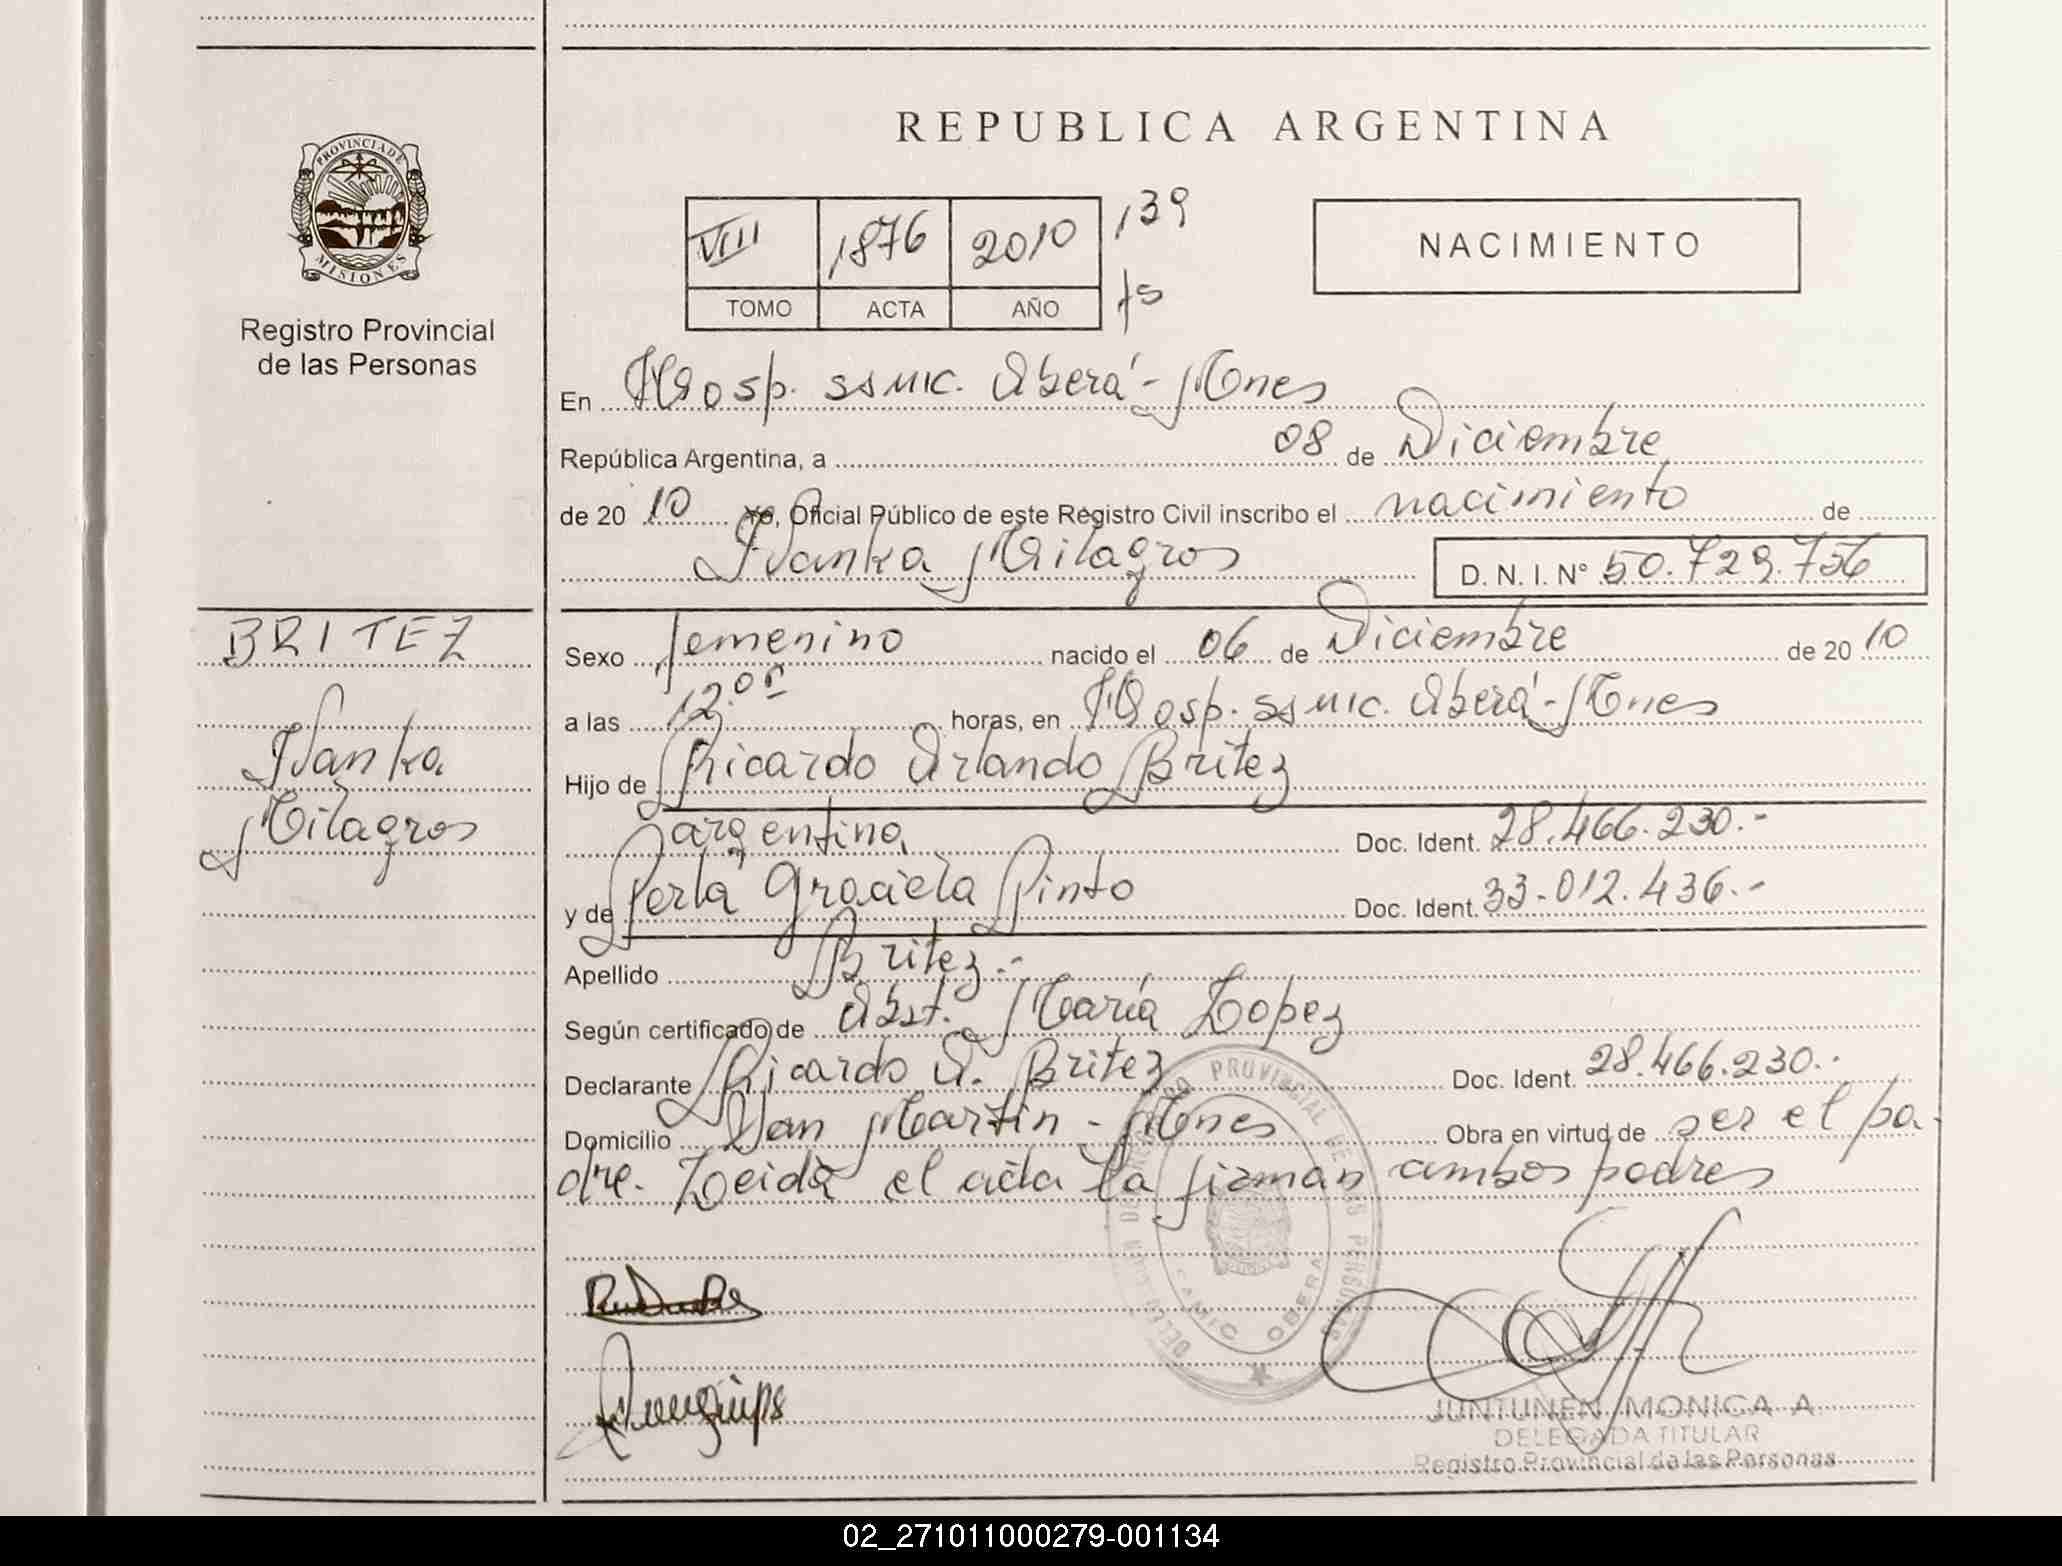 REPUBLICA ARGENTINA
PROVINCIA DE
MISIONES
Registro Provincial
de las Personas
VIII 1876 2010 139
TOMO ACTA AÑO fs
NACIMIENTO
En Hosp. SAMIC. Oberá - Mnes
República Argentina, a 08 de Diciembre
de 2010 Yo, Oficial Público de este Registro Civil inscribo el nacimiento de
Ivanka Milagros D. N. I. Nº 50.729.756
BRITEZ
Ivanka
Milagros
Sexo femenino nacido el 06 de Diciembre de 2010
a las 12.05 horas, en Hosp. SAMIC. Oberá - Mnes
Hijo de Ricardo Orlando Britez
argentina Doc. Ident. 28.466.230.-
y de Perla Graciela Pinto Doc. Ident. 33.012.436.-
Apellido Britez.-
Según certificado de Obst. María Lopez
Declarante Ricardo O. Britez Doc. Ident. 28.466.230.-
Domicilio San Martin - Mnes Obra en virtud de ser el pa-
dre. Leida el acta la firman ambos padres
PROVINCIAL DE LAS PERSONAS
SAMIC OBERA
JUNTUNEN MONICA A
DELEGADA TITULAR
Registro Provincial de las Personas
02_271011000279-001134